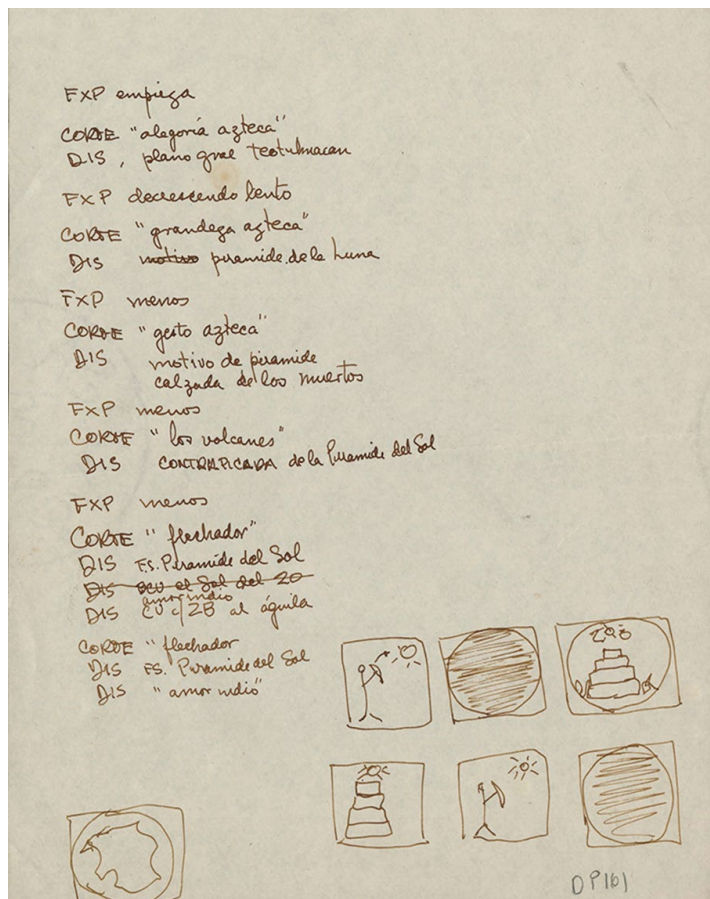 FXP empieza
CORTE "alegoría azteca"
DIS, plano gral teotihuacan
FXP decrescendo lento
CORTE "grandeza azteca"
DIS motivo piramide de la Luna
FXP menos
CORTE "gesto azteca"
DIS motivo de piramide
calzada de los muertos
FXP menos
CORTE "los volcanes"
DIS CONTRAPICADA de la Piramide del Sol
FXP menos
CORTE "flechador"
DIS F.S. Piramide del Sol
DIS BCU el Sol del 20
amor indio
DIS CU c/ZB al águila
CORTE "flechador
DIS FS. Piramide del Sol
DIS "amor indio"
DP161